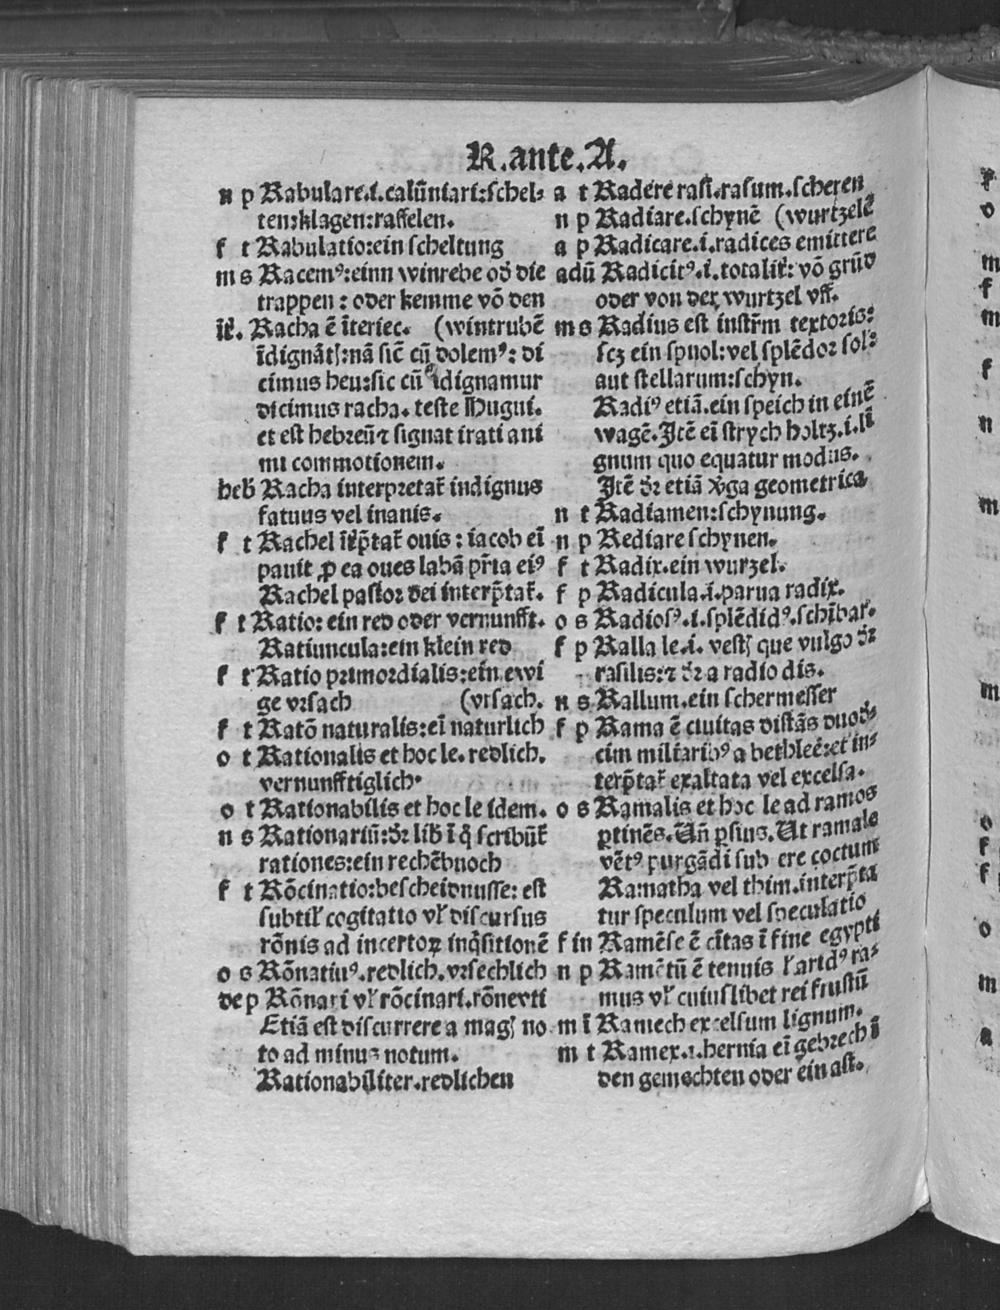 R.ante.A.
n p Rabulare.i.calūniari:schel-
ten:klagen:raffelen.
f t Rabulatio:ein scheltung
m s Racemꝰ:einn winrebe od̄ die
trappen: oder kemme vō den
iṫ. Racha ē īteriec. (wintrubē
īdignātꝭ:nā sic̄ cū dolemꝰ: di
cimus heu:sic cū īdignamur
dicimus racha. teste Hugui.
et est hebreū⁊ signat irati ani
mi commotionem.
heb̄ Racha interpretat̄ indignus
fatuus vel inanis.
f t Rachel īṫp̄tat̄ ouis: iacob eī
pauit ꝓ ea oues labā pr̄ia eiꝰ
Rachel pastor dei interp̄tat̄.
f t Ratio: ein red oder vernunfft.
Ratiuncula:ein klein red
f t Ratio primordialis:ein ewi
ge vrsach (vrsach.
f t Ratō naturalis:eī naturlich
o t Rationalis et hoc le. redlich.
vernunfftiglich.
o t Rationabilis et hoc le idem.
n s Rationariū:dr̄ lib̄ ī q̄ scribūt̄
rationes:ein rechēbuoch
f t Rōcinatio:bescheidnusse: est
subtil̄ cogitatio vl̄ discursus
rōnis ad incertoꝝ inq̄sitionē
o s Rōnatiuꝰ.redlich.vrsechlich
de p Rōnari vl̄ rōcinari.rōnerti
Etiā est discurrere a magꝭ no
to ad minus notum.
Rationabiliter.redlichen
a t Radere rasi.rasum.scheren
n p Radiare.schynē (wurtzelē
a p Radicare.i.radices emittere
adū Radicitꝰ.i.totalit̄: vō grūd
oder von der wurtzel vff.
m s Radius est instr̄m textoris:
scꝫ ein spuol:vel splēdor sol:
aut stellarum:schyn.
Radiꝰ etiā.ein speich in einē
wagē.Itē eī strych holtz.i.li
gnum quo equatur modus.
Itē dr̄ etiā v̄ga geometrica
n t Radiamen:schynung.
n p Rediare schynen.
f t Radix.ein wurzel.
f p Radicula.i.parua radix.
o s Radiosꝰ.i.splēdidꝰ.schībar.
f p Ralla le.i. vestꝭ que vulgo dr̄
rasilis:⁊ dr̄ a radio dis.
n s Rallum.ein schermesser
f p Rama ē ciuitas distās duod-
cim miliaribꝰ a bethleē:et in-
terp̄tat̄ exaltata vel excelsa.
o s Ramalis et hoc le ad ramos
ꝑtinēs.Un̄ ꝑsius.Ut ramale
vētꝰ purgādi sub ere coctum
Ramatha vel thim.interp̄ta
tur speculum vel speculatio
f in Ramēse ē cītas ī fine egypti
n p Ramētū ē tenuis l̄ aridꝰ ra-
mus vl̄ cuiuslibet rei frustū
m i Ramech excelsum lignum.
m t Ramex.i.hernia eī gebrech ī
den gemechten oder ein ast.